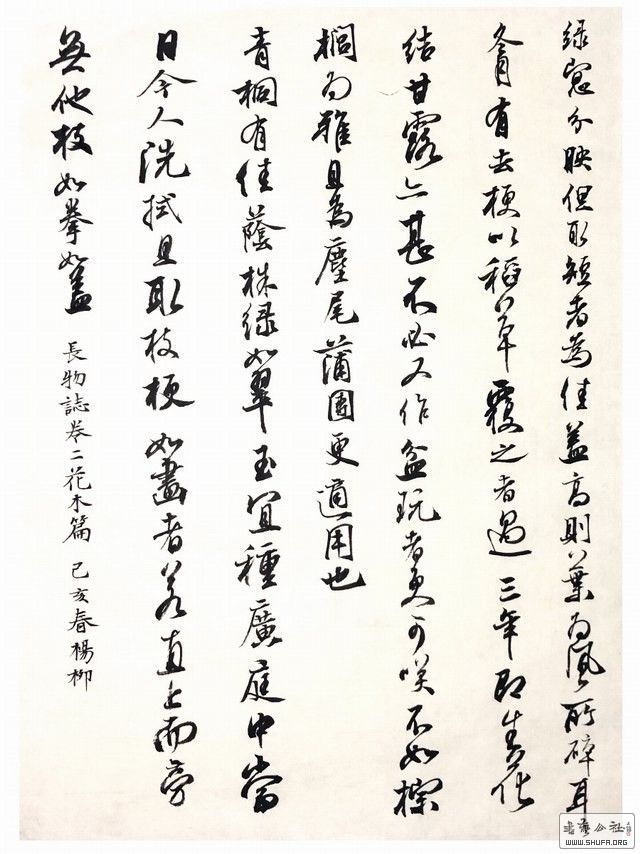 緑窓分映但取短者為佳蓋高則葉為風所碎耳
冬月有去梗以稻草覆之者過三年即生花
結甘露亦甚不必又作盆玩者更可咲不如椶
櫚為雅且為麈尾蒲團更適用也
青桐有佳蔭株緑如翠玉宜種廣庭中當
日令人洗拭且取枝梗如畫者若直上而旁
無他枝如拳如蓋
長物誌卷二花木篇 己亥春楊柳
書法公社
WWW.SHUFA.ORG